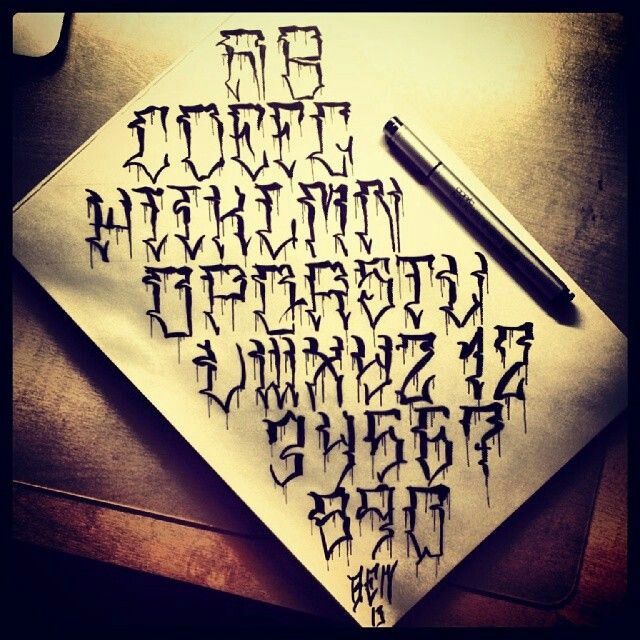 A B
C D E F G
H I J K L M N
O P Q R S T U
V W X Y Z 1 2
3 4 5 6 7
8 9 0